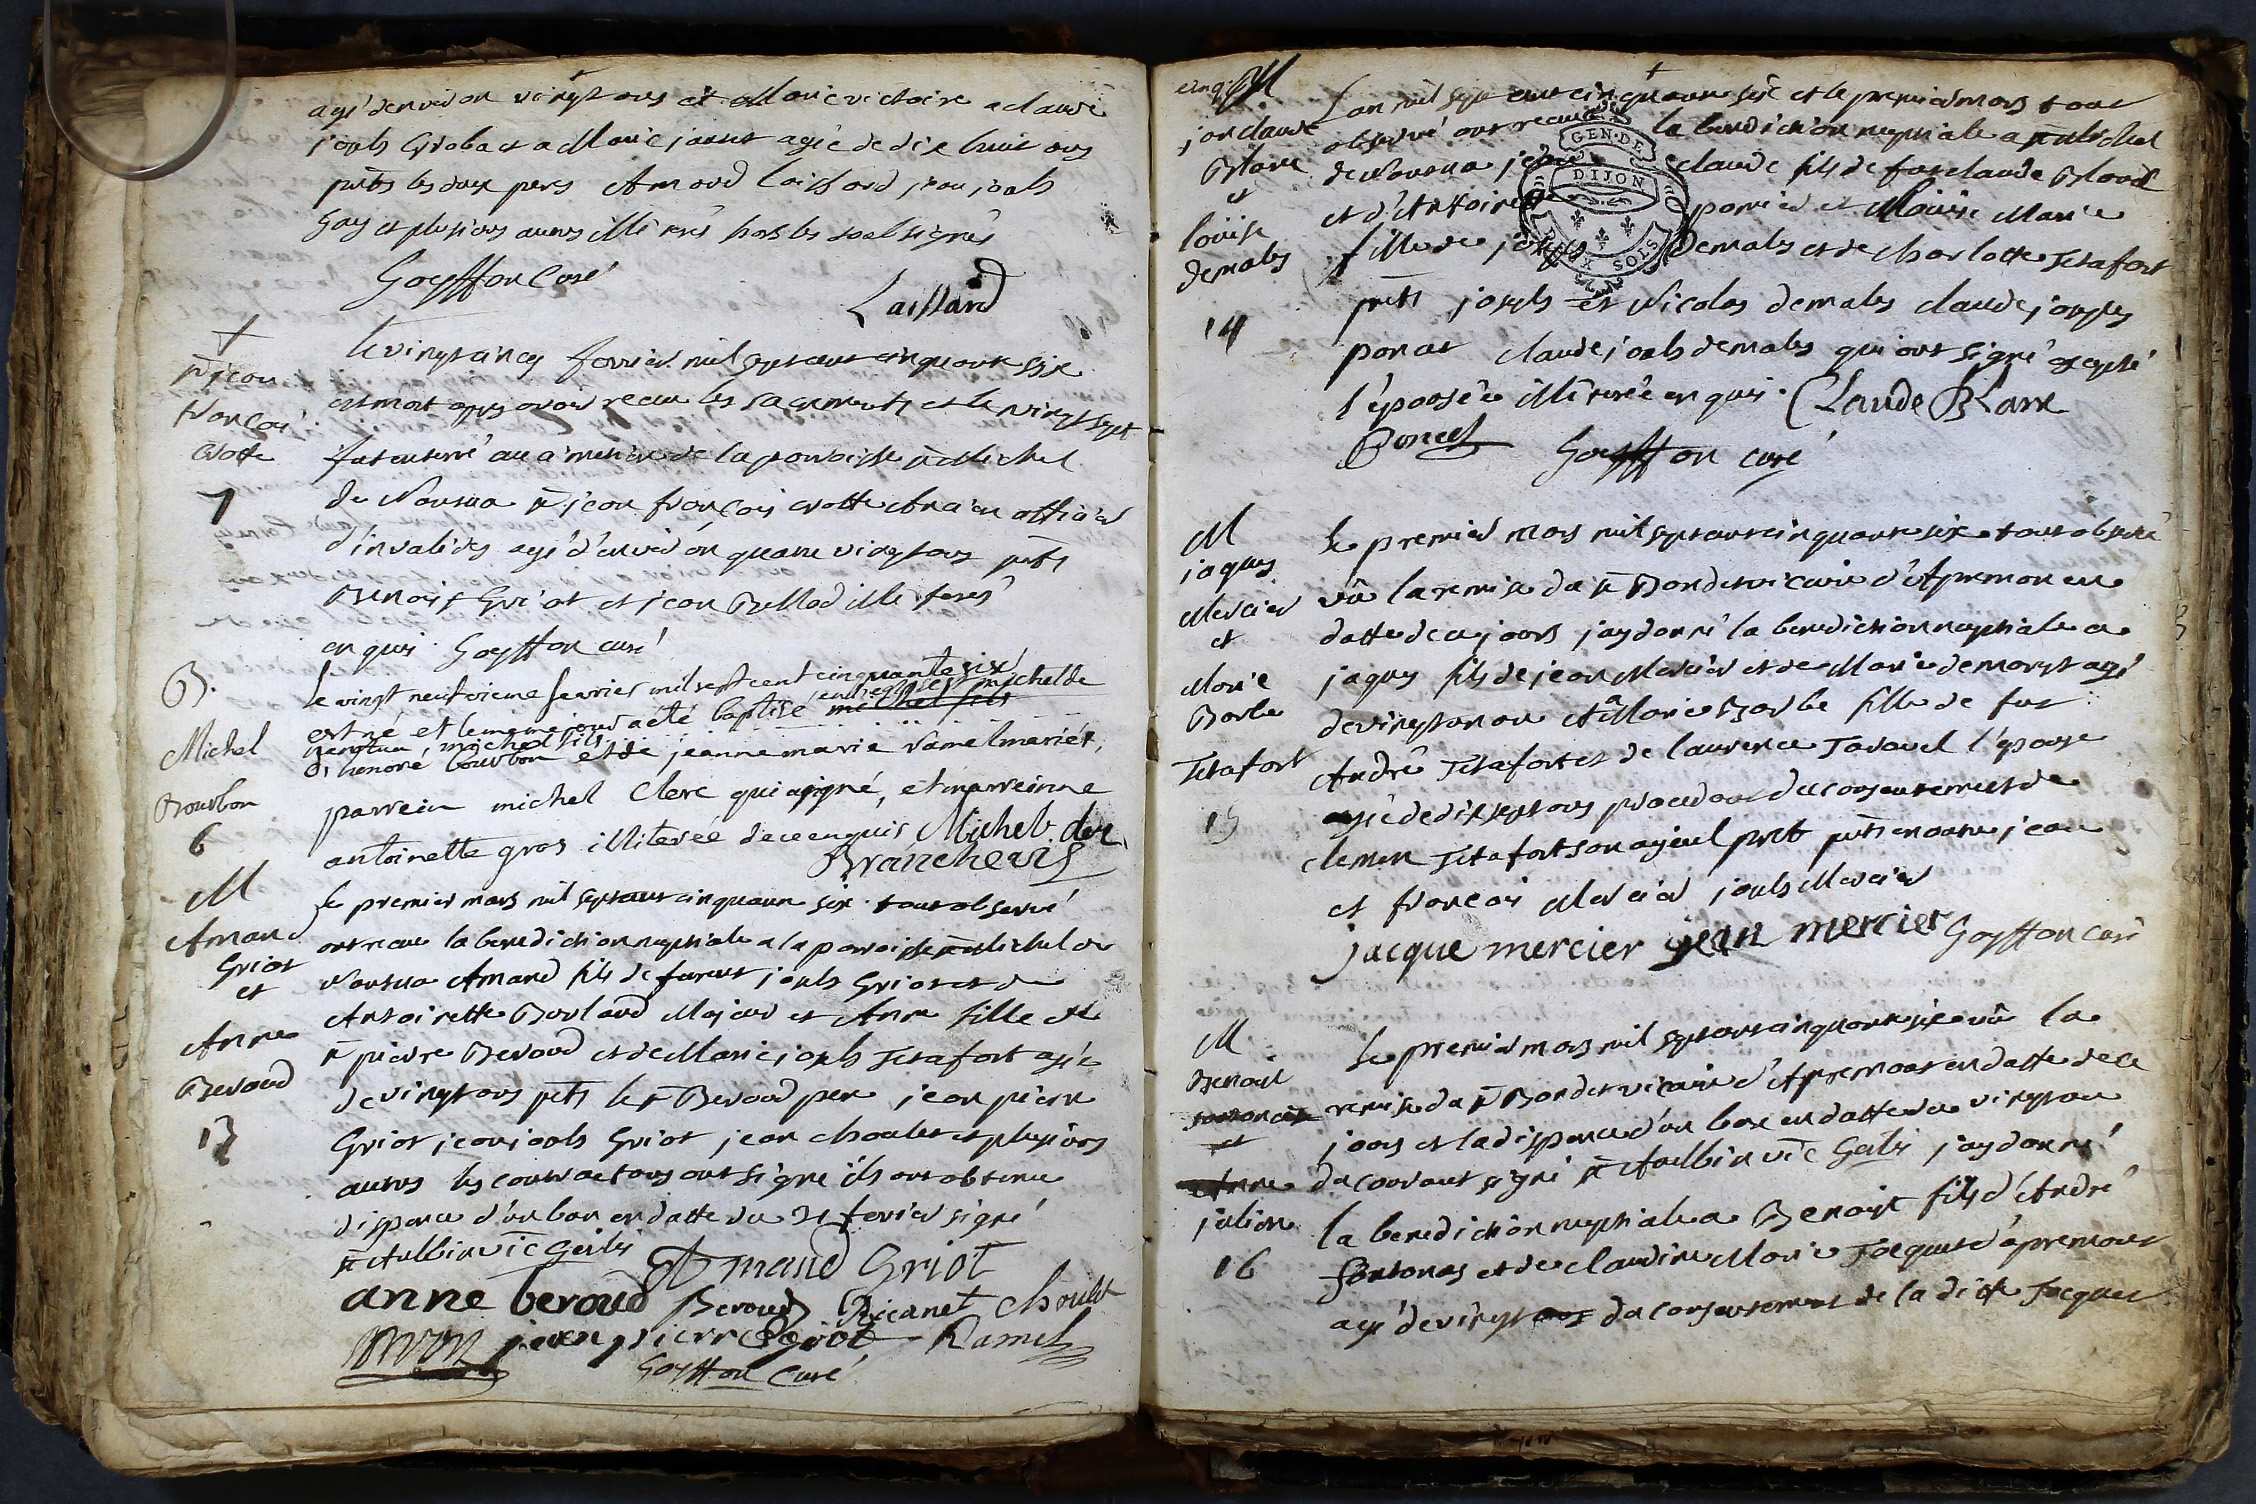 agé denviron vingt ans et Marie victoire a claude
josph Groba et a Marie jantet agée de dix huit ans
pnts les deux peres Amand Laissard jean josph
Gay et plusieurs autres illiterés hors les soubsignés
Goyffon Curé
Laissard
+
Sr jean
françois
crotte
7
le vingtcinq fevrier mil septcent cinquante six
est mort apres avoir receu les sacrements et le vingt sept
fut enterré au cimetiere de la paroisse St Michel
de Nantua Sr jean françois crotte ancien officier
d'invalides agé d'environ quatre vingt ans pnts
Benoist Griot et jean Bellod illiterés
enquis Goyffon curé
B.
Michel
Bourbon
6
le vingt neufvieme fevrier mil sept cent cinquante six
est né et le meme jour a été baptisé en l'eglise st michel de
nantua, michel fils
d'honoré bourbon et de jeanne marie ramel mariés,
parrein michel Clerc qui a signé, et marreinne
antoinette gros illiterée de ce enquis Michel clerc
Brancheris
M
Amand
Griot
et
Anne
Beroud
13
le premier mars mil septcent cinquante six tout observé
ont receu la benediction nuptiale a la paroisse St Michel de
Nantua Amand fils de furent josph Griot et de
Antoinette Borland Majeur et Anne fille de
Sr pierre Beroud et de Marie josph Tetafort agée
de vingt ans pnts le Sr Beroud pere jean pierre
Griot jean josph Griot jean choulet et plusieurs
autres les contractans ont signé ils ont obtenu
dispence d'un ban en datte du 21 fevrier signé
St Aulbin vic Gerl
Armand Griot
anne beroud Beroud Ricanet Choulet
jean pierre Griot Ramel
Goyffon Curé
M
jon claude
Blanc
et
loüise
demales
14
L'an mil sept cent cinquante six et le premier mars tout
observé ont receu la benediction nuptiale a St Michel
de Nantua claude fils de fut claude Blanc
et d'Antoinette et Loüise Marie
fille de joseph Demales et de charlotte Tetafort
GEN. DE
DIJON
DEUX SOLS
pnts joseph et Nicolas demales claude joseph
poncet claude josph demales qui ont signé excepté
l'epousée illiterée enquis. Claude Blanc
Poncet
Goyffon curé
M
jaques
Mercier
et
Marie
Barbe
Tetafort
15
le premier mars mil septcent cinquante six tout observé
vû la remise du Sr Bondet vicaire d'Apremon en
datte de ce jours jay donné la benediction nuptiale a
jaques fils de jean Mercier et de Marie demornet agé
de vingt un an et a Marie Barbe fille de fut
André Tetafort et de laurence Tavanel l'epouse
agée de dix sept ans procedant du consentement de
clemen Tetafort son ayieul pnt pnts encore jean
et françois Mercier josph Mercier
jacque mercier jean mercier Goyffon curé
M
Benoist
et
Anne
julien
16
le premier mars mil septcent cinquante six vû la
remise du Sr Bondet vicaire d'Apremont en datte de ce
jours et la dispence d'un ban en datte du vingt un
du courant signé St Aulbin vic Gerl jay donné
la benediction nuptiale a Benoist fils d'André
fontanas et de claudine Marie Jacquet d'apremont
agé de vingt ans du consentement de la ditte Jacquet